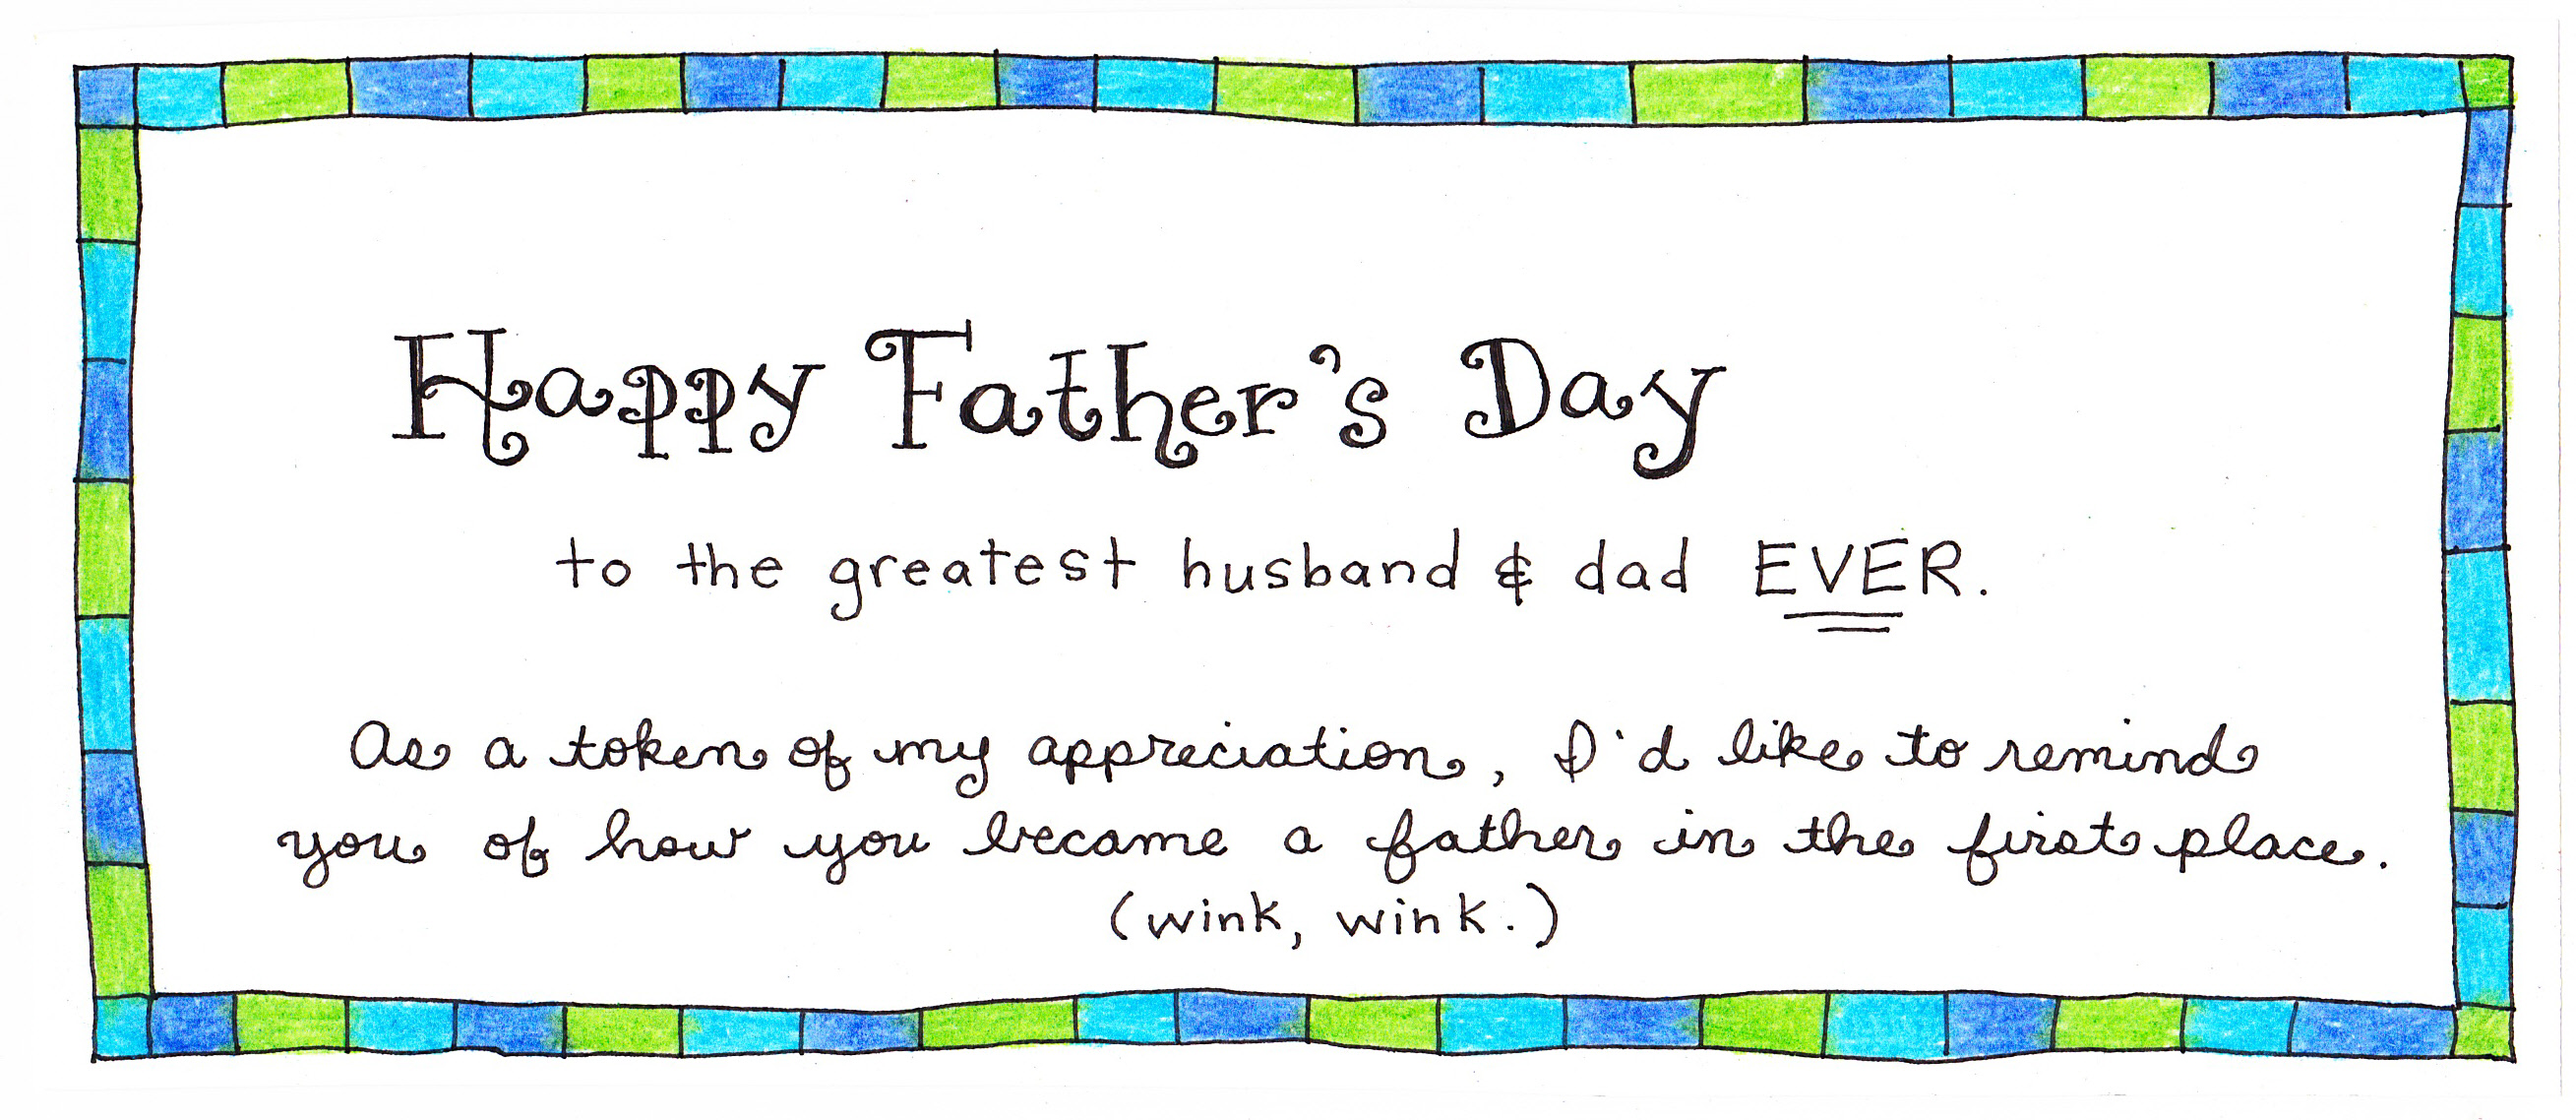 Happy Father's Day
to the greatest husband & dad EVER.
As a token of my appreciation, I'd like to remind
you of how you became a father in the first place.
(wink, wink.)